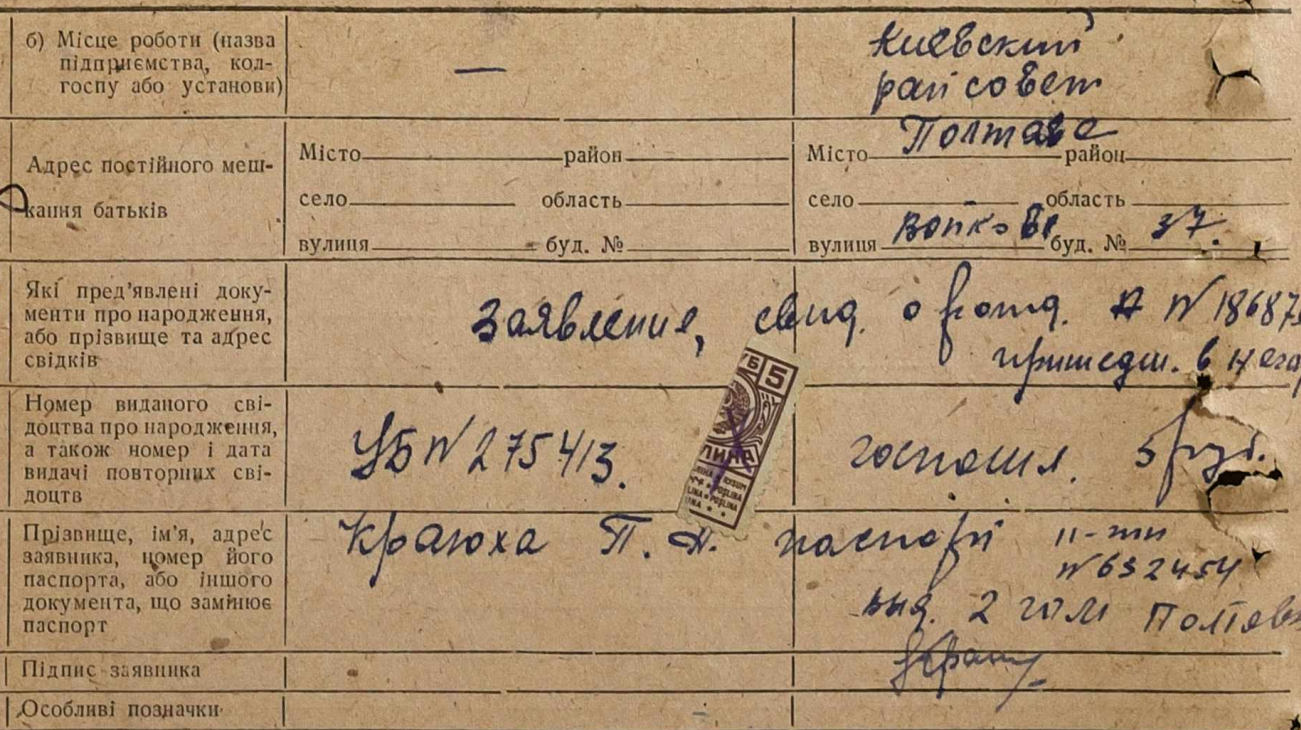 б) Місце роботи (назва
підприємства, кол-
госпу або установи)
—
Киевский
рай совет
Адрес постійного меш-
кання батьків
Місто район
село область
вулиця буд. №
Місто Полтава район
село область
вулиця Войкова буд. № 37.
Які пред'явлені доку-
менти про народження,
або прізвище та адрес
свідків
Заявление, свид. о рожд. № 18687
пришедш. в
Номер виданого сві-
доцтва про народження,
а також номер і дата
видачі повторних сві-
доцтв
УБ № 275413.
5
госпошл. 5 руб.
Прізвище, ім'я, адрес
заявника, номер його
паспорта, або іншого
документа, що замінює
паспорт
Краюха П. А. паспорт
№ 632454
выд. 2 гом Полтав
Підпис заявника
Особливі позначки